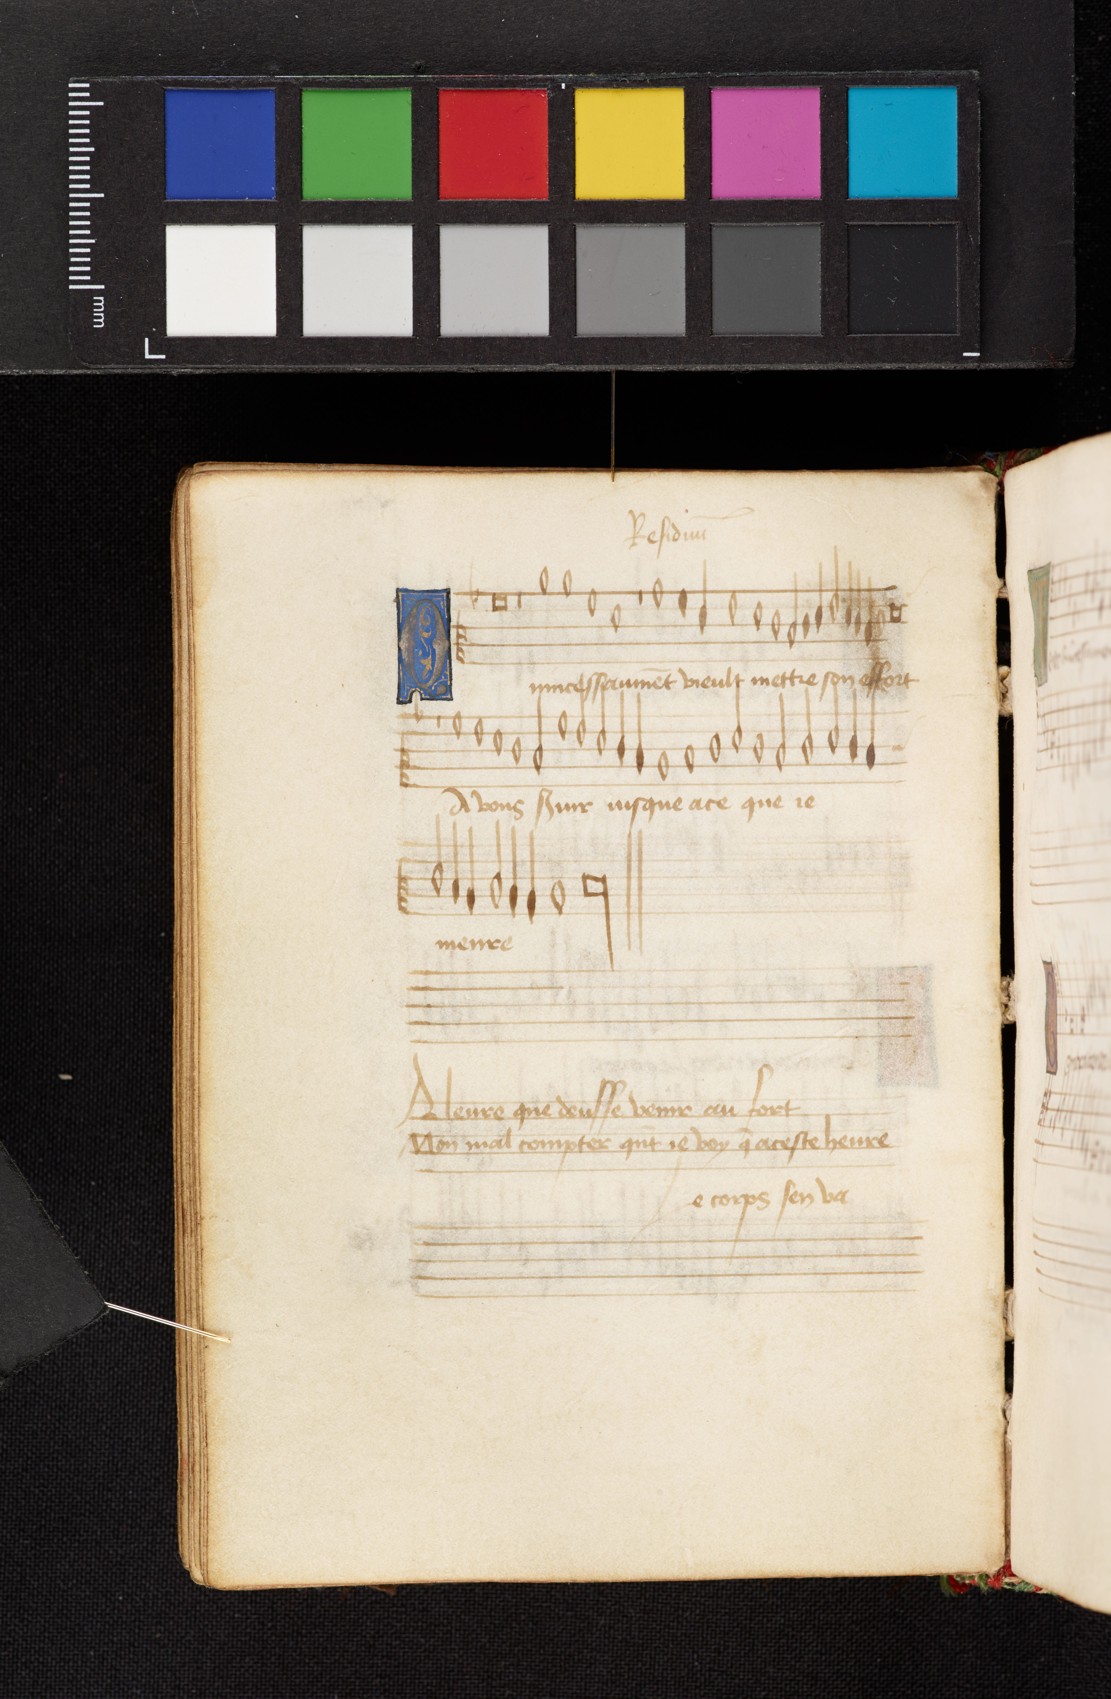 mm
Residuu
O
mincessaument vieult mettre son effort
A vous s'uir iusque ace que ie
meure
Aleure que deusse venir au fort
Mon mal compter qnt ie voy q̄ aceste heure
e corps sen va